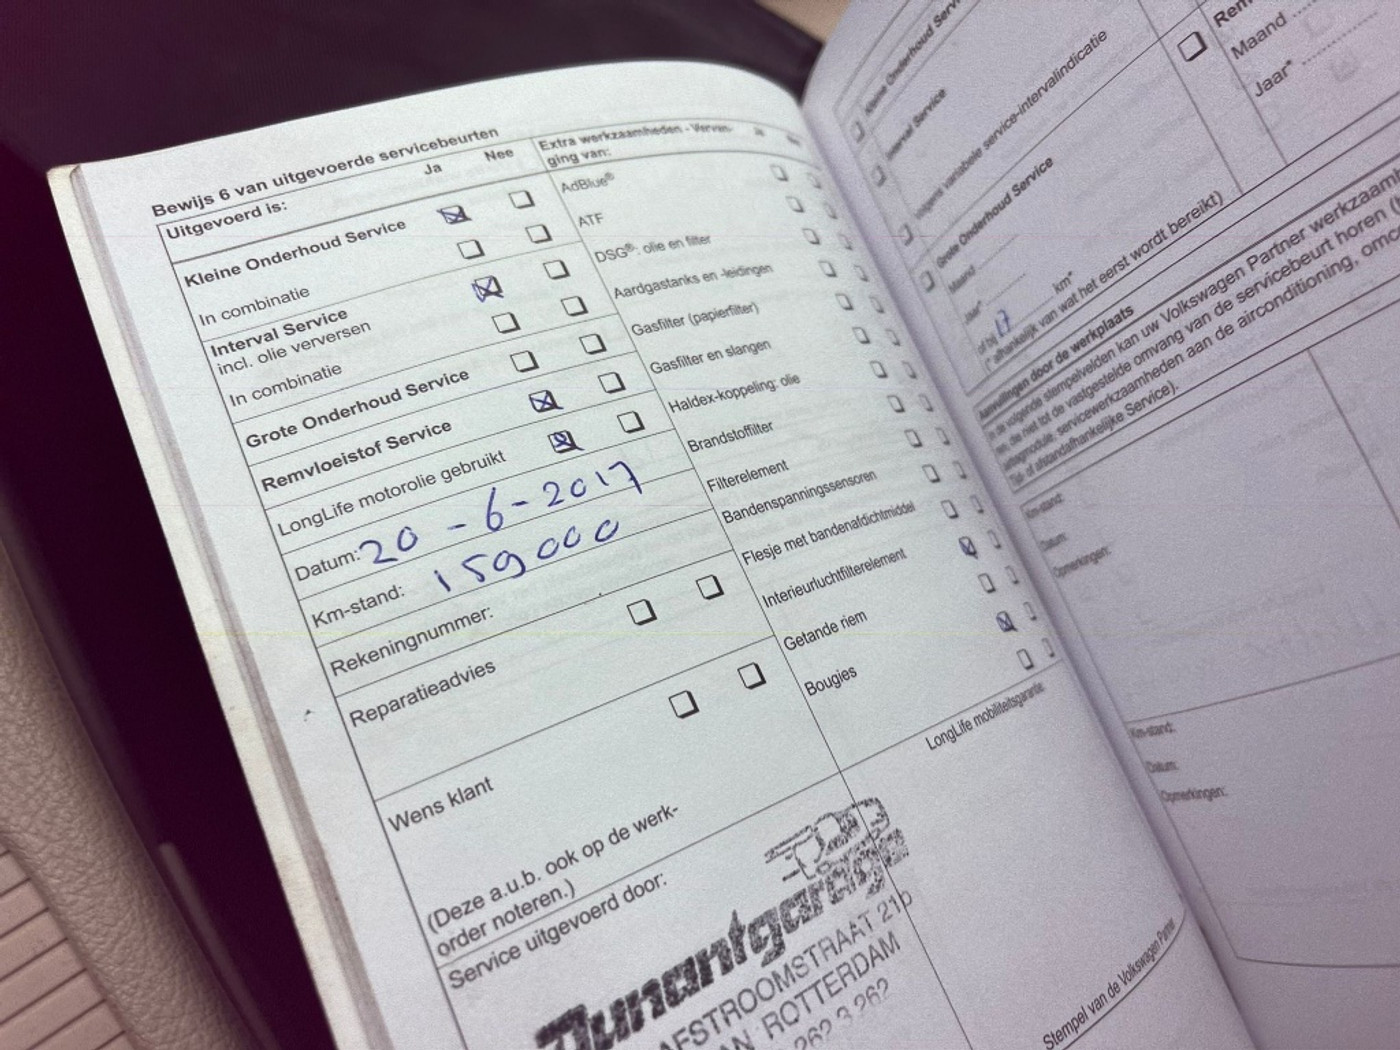 Bewijs 6 van uitgevoerde servicebeurten
Uitgevoerd is:
Ja
Nee
Kleine Onderhoud Service
In combinatie
Interval Service
incl. olie verversen
In combinatie
Grote Onderhoud Service
Remvloeistof Service
LongLife motorolie gebruikt
Datum: 20-6-2017
Km-stand: 159000
Rekeningnummer:
Reparatieadvies
Wens klant
(Deze a.u.b. ook op de werk-
order noteren.)
Service uitgevoerd door:
Extra werkzaamheden - Vervan-
ging van:
AdBlue®
ATF
DSG®: olie en filter
Aardgastanks en -leidingen
Gasfilter (papierfilter)
Gasfilter en slangen
Haldex-koppeling: olie
Brandstoffilter
Filterelement
Bandenspanningssensoren
Flesje met bandenafdichtmiddel
Interieurluchtfilterelement
Getande riem
Bougies
LongLife mobiliteitsgarantie
Dunantgarage
AFSTROOMSTRAAT 21b
ROTTERDAM
262 3 262
Stempel van de Volkswagen Partner
Kleine Onderhoud Service
Interval Service
Volgens variabele service-intervalindicatie
Grote Onderhoud Service
Maand
Jaar*
17
of bij km*
(*afhankelijk van wat het eerst wordt bereikt)
Rem
Maand
Jaar*
Aanvullingen door de werkplaats
In de volgende stempelvelden kan uw Volkswagen Partner werkzaamh
en, die niet tot de vastgestelde omvang van de servicebeurt horen (
servicewerkzaamheden aan de airconditioning, omc
Tijd- of afstandafhankelijke Service).
Km-stand:
Datum:
Opmerkingen:
Km-stand:
Datum:
Opmerkingen: